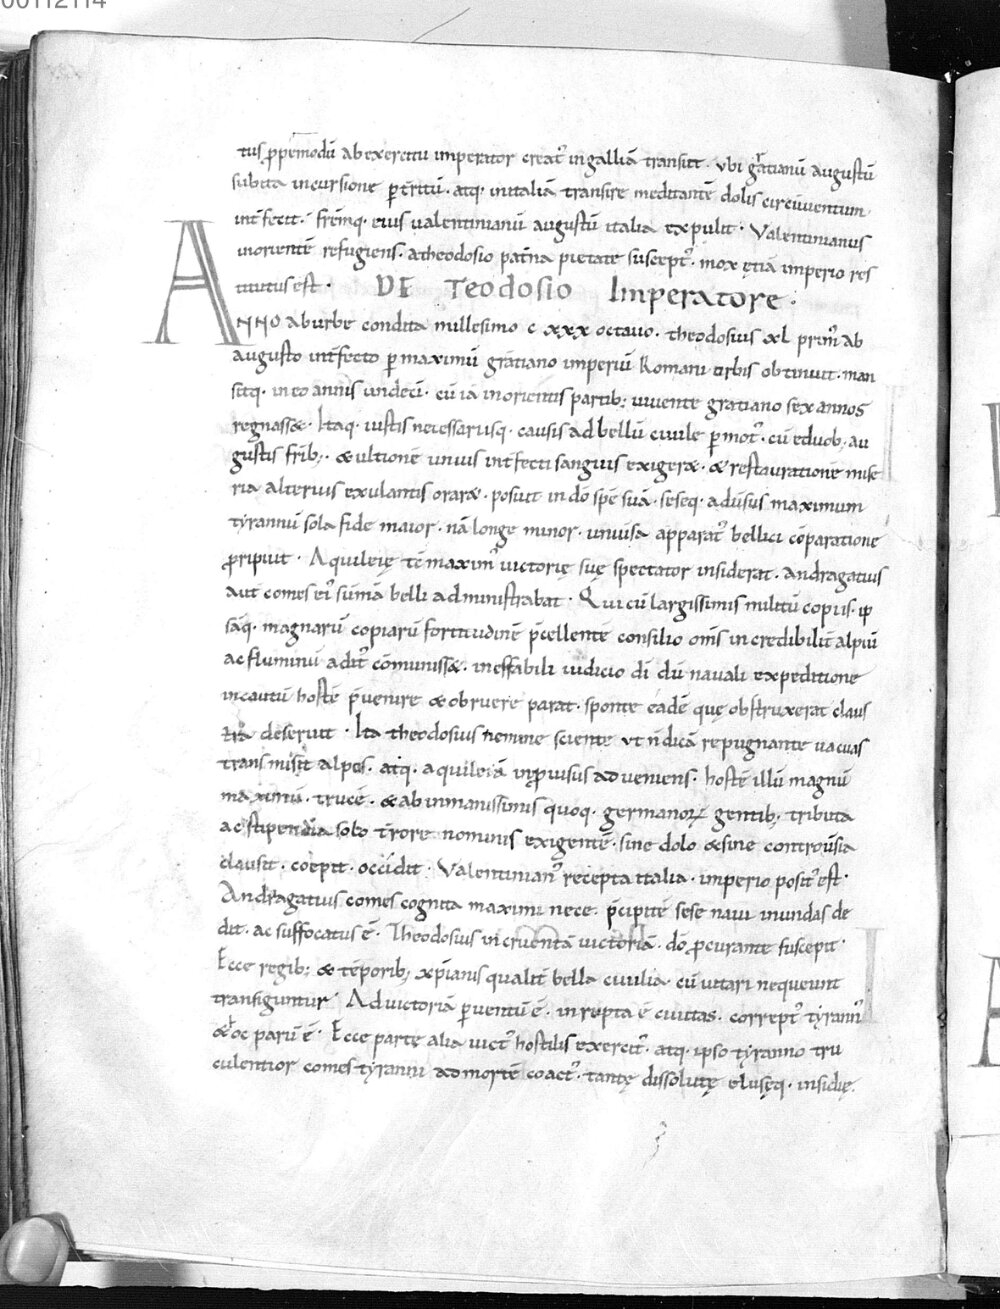 00112114
tus ppemodū ab exercitu imperator creat᷒ in galliā transiit · vbi gratianū augustū
subita incursione pt̄ritū · atq· in italiā transire meditantē dolis circūuentum
int̄fecit · fr̄emq· eius ualentinianū augustū italia expulit · Valentinianus
in orientē refugiens · a theodosio pat̄na pietate suscept᷒ · mox ętiā imperio res
titutus est · DE Teodosio Imperatore ·
ANNO ab urbe condita millesimo c xxx octauo · theodosius xl prim᷒ ab
augusto int̄fecto p maximū gratiano imperiū Romani orbis obtinuit · man
sitq· in eo annis undecī · cū iā in orientis partib; uiuente gratiano sex annos
regnass& · Itaq· iustis necessariisq· causis ad bellū ciuile pmot᷒ · cū e duob; au
gustis fr̄ib; · & ultionē unius int̄fecti sanguis exiger& · & restaurationē mise
ria alterius exulantis orar& · posuit in dō spē suā · seseq· aduīsus maximum
tyrannū sola fide maior · nā longe minor · uniuīsa apparat᷒ bellici cōparatione
pripuit · Aquileię tē maxim᷒ uictorię suę spectator insiderat · Andragatius
aut̄ comes ei᷒ sūmā belli administrabat · Qui cū largissimis militū copiis · ip
sāq· magnarū copiarū fortitudinē p̄cellente consilio om̄s incredibilit̄ alpiū
ac fluminū adit᷒ cōmuniss& · ineffabili iudicio dī dū nauali expeditione
incautū hostē p̄uenire & obruere parat · sponte eadē quę obstruxerat claus
tra deseruit · Ita theodosius nemine sciente ut n̄ dicā repugnante uacuas
transmisit alpes · atq· aquileiā inprouisus adueniens · hostē illū magnū
maximū · trucē · & ab inmanissimis quoq· germanorꝝ gentib; tributa
ac stipendia solo t̄rore nominis exigentē · sine dolo & sine controūsia
clausit · coepit · occidit · Valentinian᷒ recepta italia · imperio posit᷒ est ·
Andragatius comes cognita maximi nece · p̄cipitē sese naui in undas de
dit · ac suffocatus ē · Theodosius incruentā uictoriā · dō pcurante suscepit ·
Ecce regib; & tēporib; xp̄ianis qualit̄ bella ciuilia · cū uitari nequeunt
transiguntur · Ad uictoriā puentū ē · inrupta ē ciuitas · corrept᷒ tyrann᷒
& hoc parū ē · Ecce parte alia uict᷒ hostilis exercit᷒ · atq· ipso tyranno tru
culentior comes tyranni ad mortē coact᷒ · tantę dissolutę elusęq· insidię ·